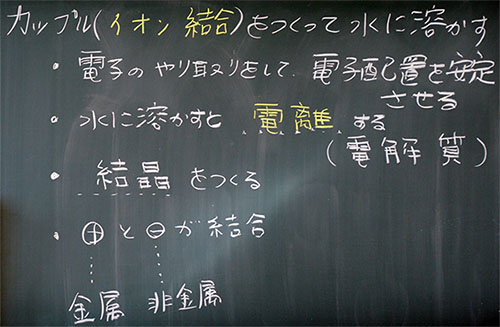 カップル(イオン結合)をつくって水に溶かす
・電子のやり取りをして、電子配置を安定
させる
・水に溶かすと電離する
(電解質)
・結晶をつくる
・⊕と⊖が結合
金属 非金属